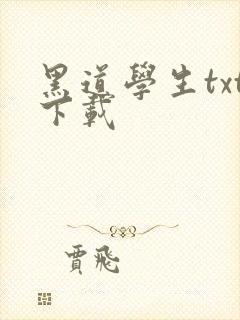 黑道學生txt
下載
賈飛